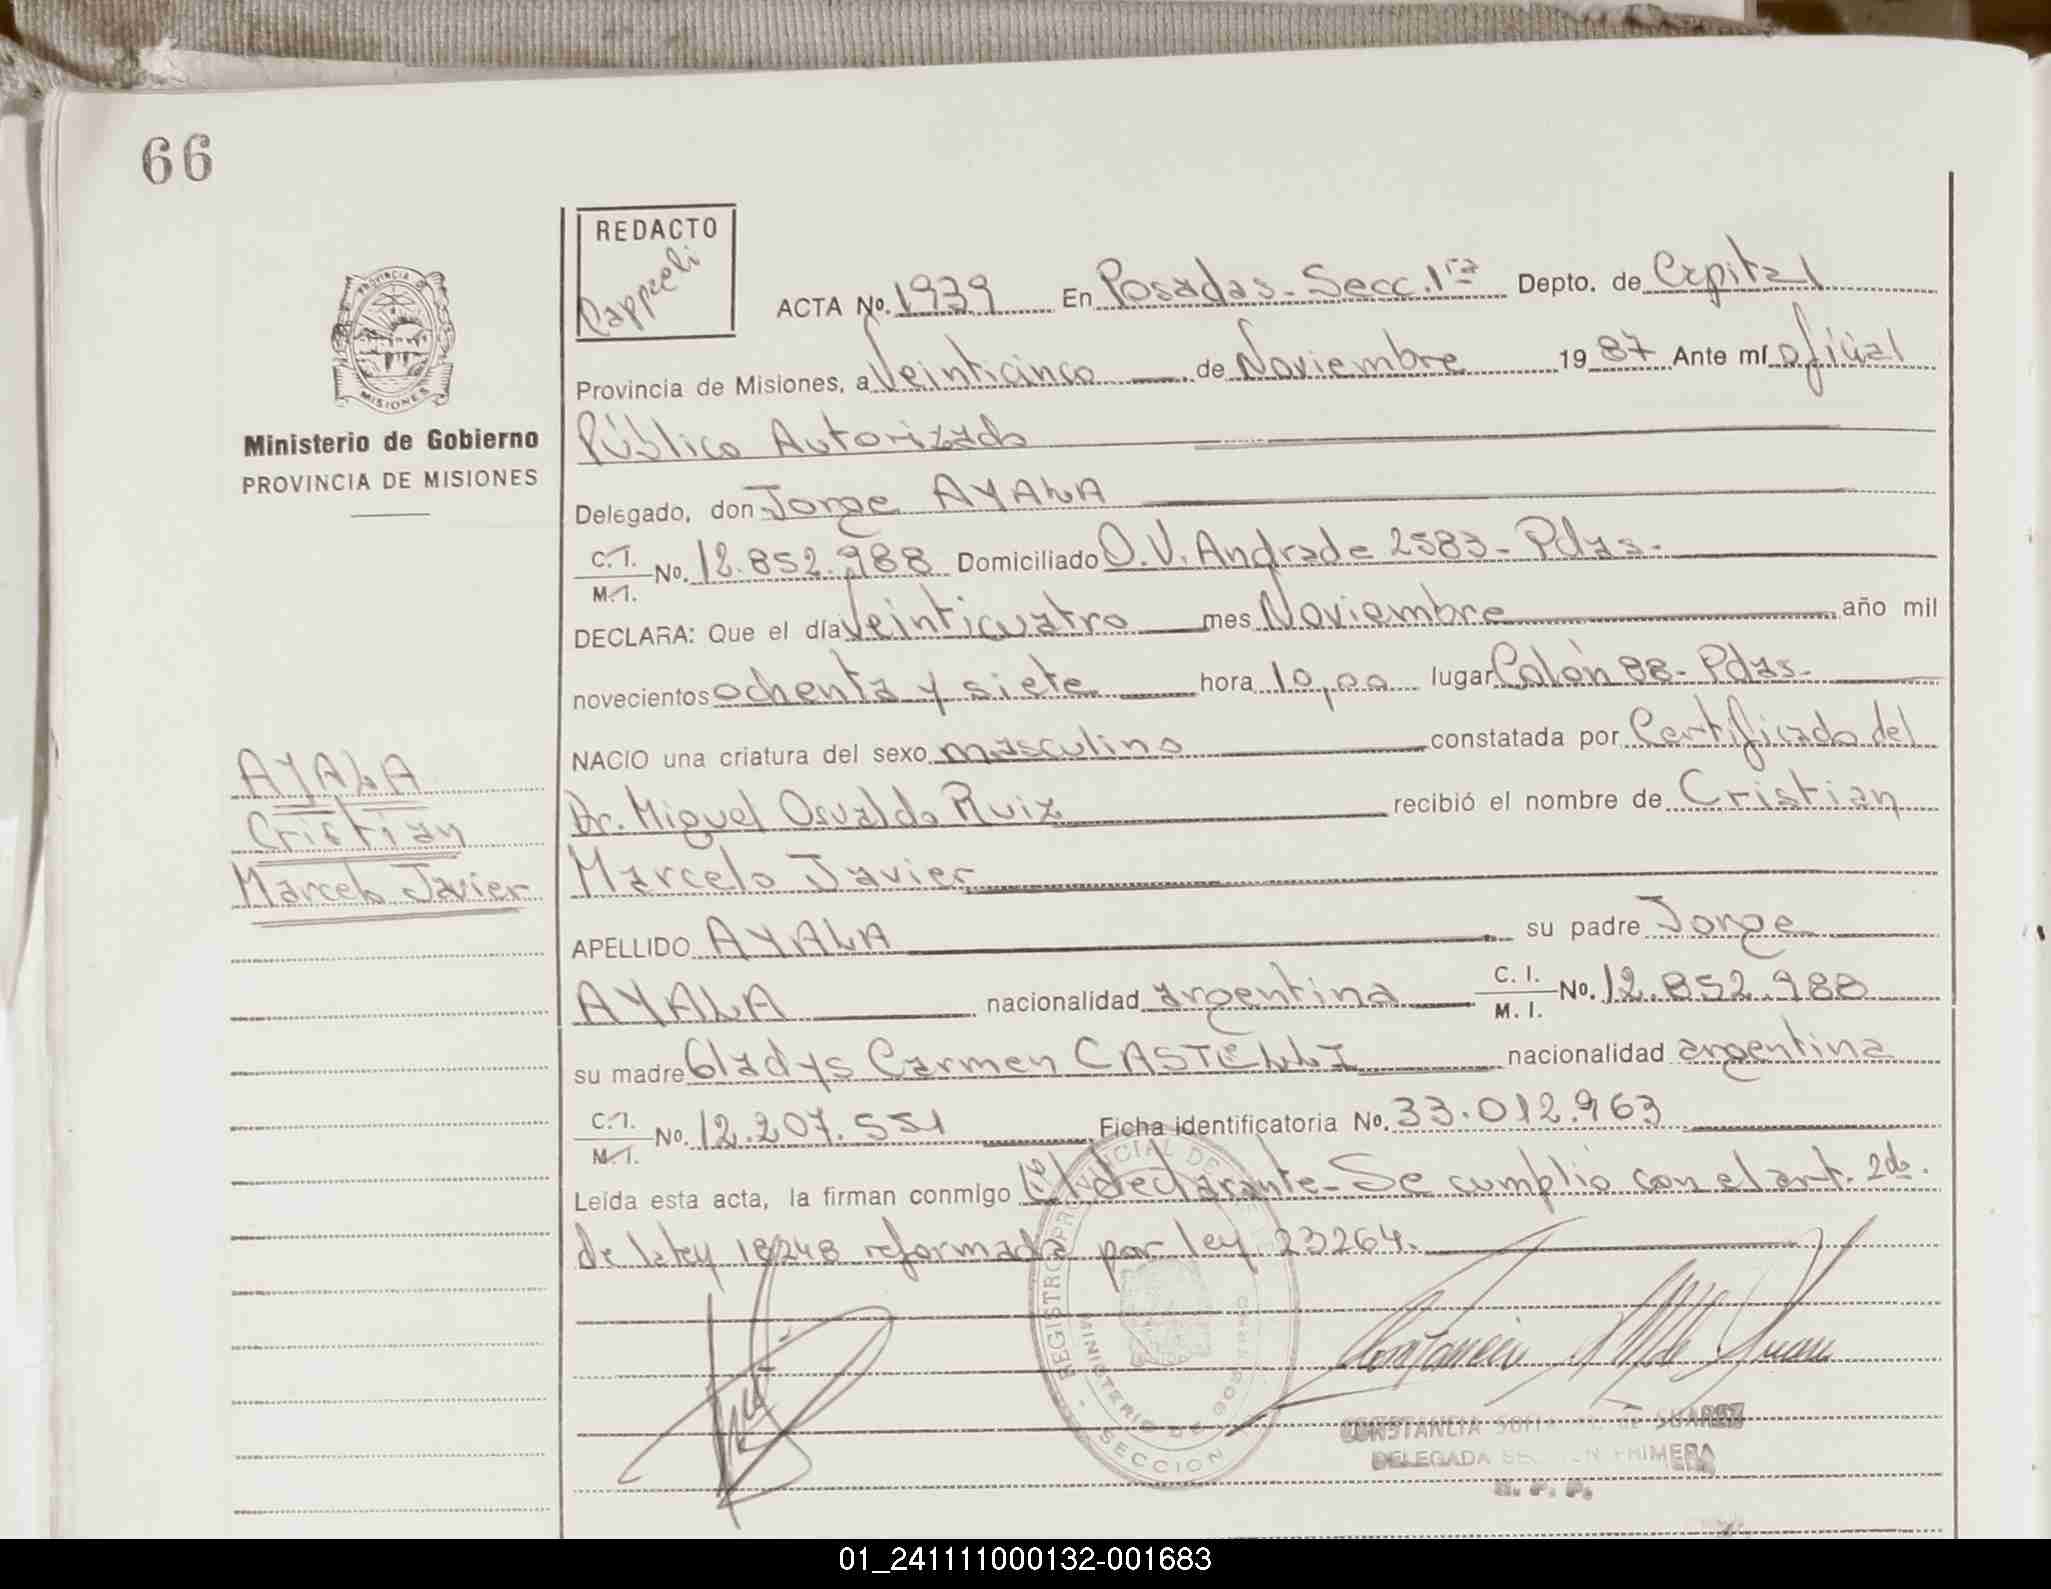 66
REDACTO
Cappceli
ACTA No. 1939 En Posadas - Secc. 1ra Depto. de Capital
Provincia de Misiones, a Veinticinco de Noviembre 19 87 Ante mí oficial
Público Autorizado
Delegado, don Jorge AYALA
C.I. M.I. No. 12.852.988 Domiciliado O.V. Andrade 2583 - Pdas.
DECLARA: Que el día Veinticuatro mes Noviembre año mil
novecientos ochenta y siete hora 10,00 lugar Colón 88 - Pdas.
NACIO una criatura del sexo masculino constatada por Certificado del
Dr. Miguel Osvaldo Ruiz recibió el nombre de Cristian
Marcelo Javier
APELLIDO AYALA su padre Jorge
AYALA nacionalidad argentina C. I. M. I. No. 12.852.988
su madre Gladys Carmen CASTELLI nacionalidad argentina
C.I. M.I. No. 12.207.551 Ficha identificatoria No. 33.012.963
Leída esta acta, la firman conmigo El declarante - Se cumplió con el art. 2do.
de la ley 18248 reformada por ley 23264.
PROVINCIA DE MISIONES
Ministerio de Gobierno
PROVINCIA DE MISIONES
AYALA
Cristian
Marcelo Javier
REGISTRO PROVINCIAL DE
MINISTERIO DE GOBIERNO
SECCION
CONSTANCIA SOFIA DE SUAREZ
DELEGADA SECCION PRIMERA
R. P. P.
01_241111000132-001683